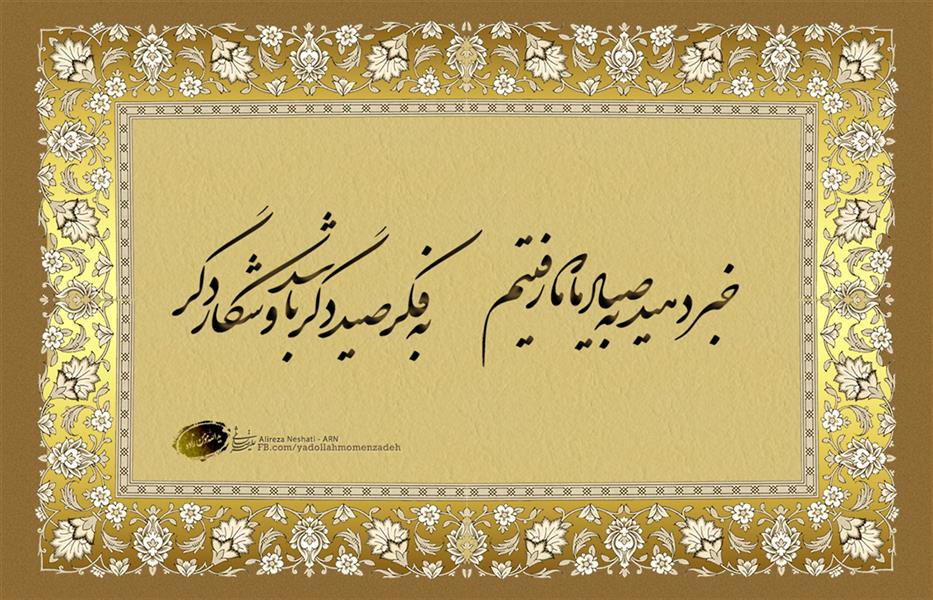 خبر دهید به صیاد ما که ما رفتیم
به فکر صید دگر باشد و شکار دگر
Alireza Neshati - ARN
FB.com/yadollahmomenzadeh